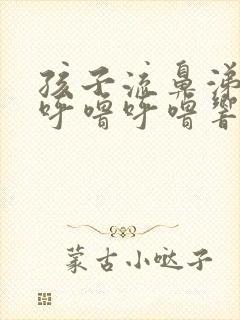 孩子流鼻涕
呼噜呼噜響
蒙古小哒子